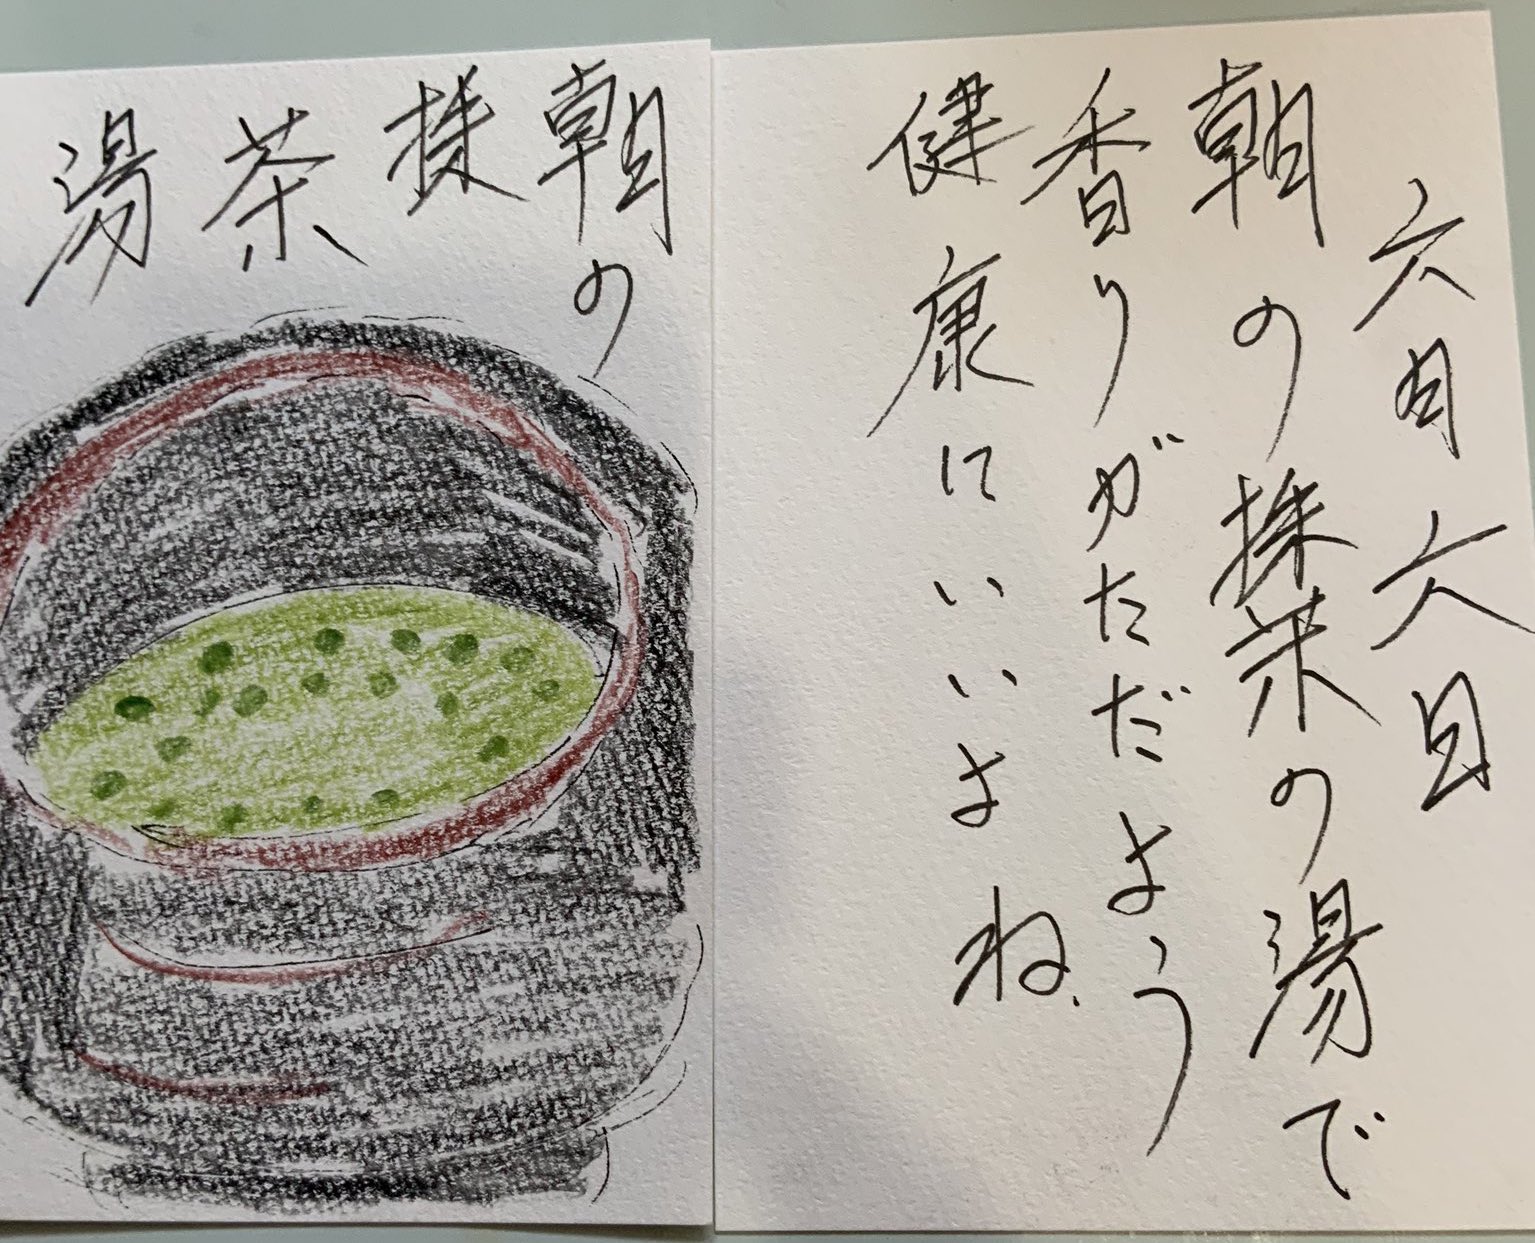 六月六日
朝の抹茶の湯で
香りがただよう
健康にいいよね
朝の
抹
茶
湯